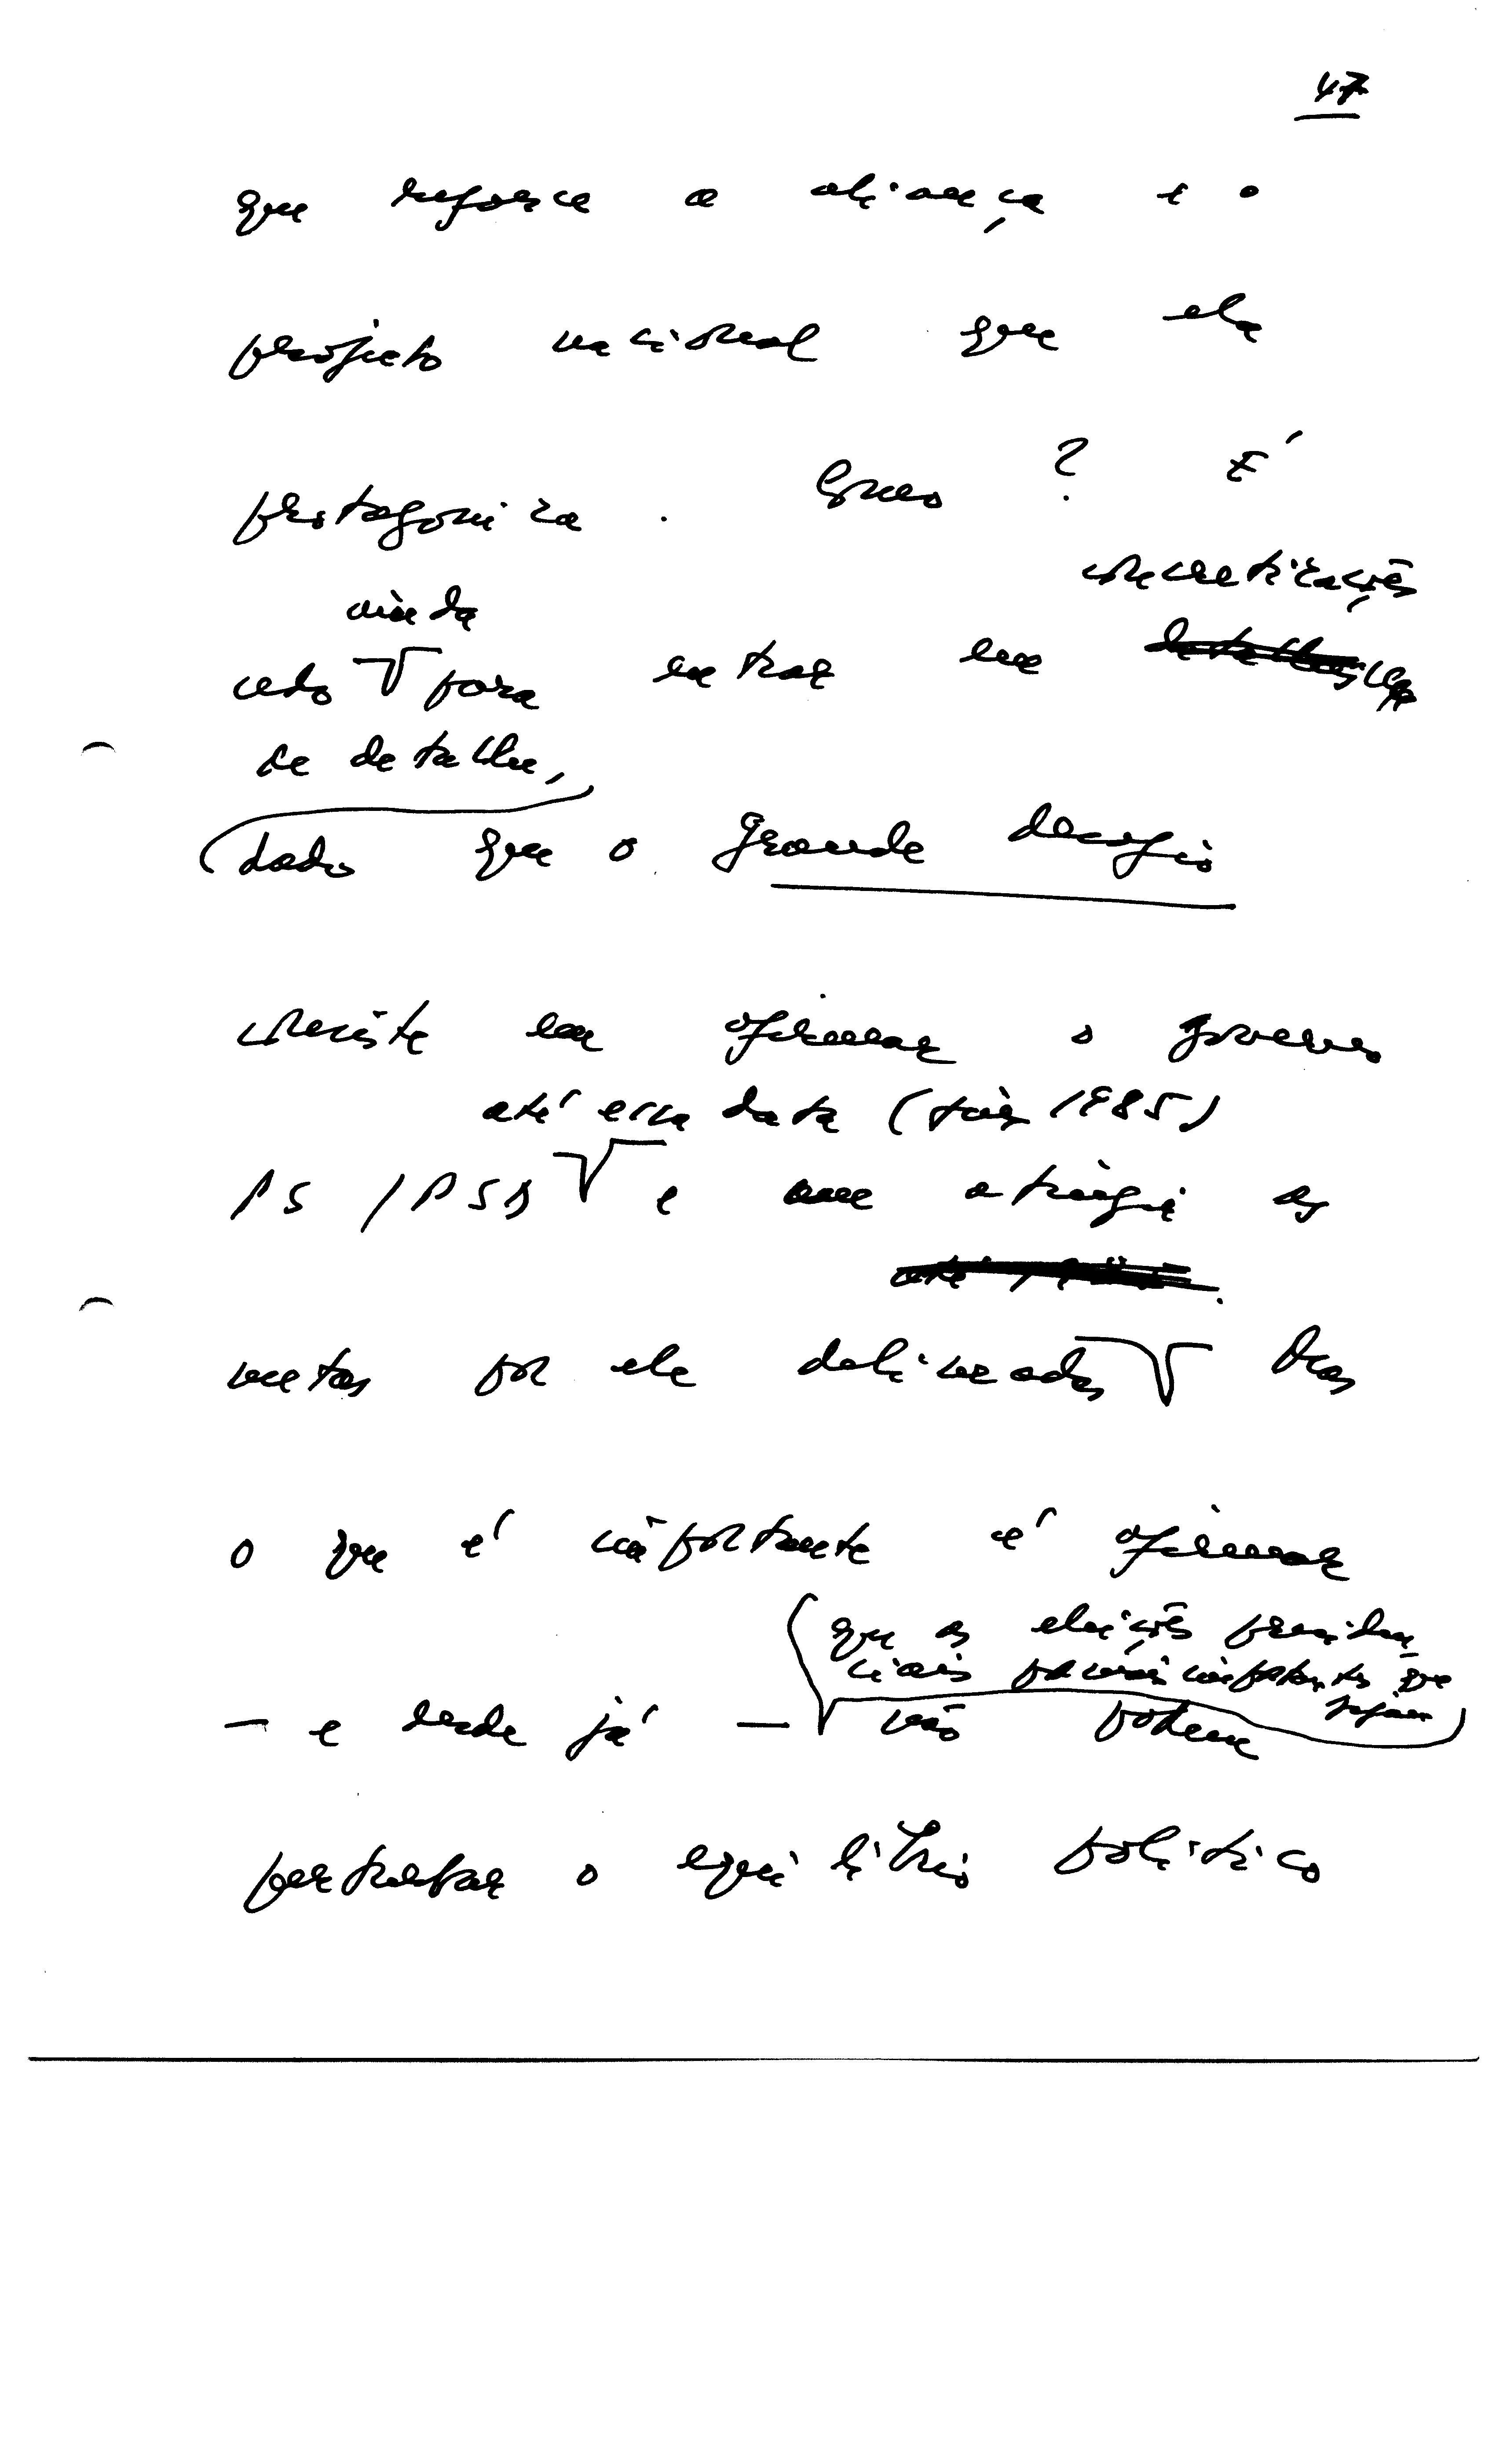 47
que reforce a aliança e o
projecto nacional que ela
protagoniza. Como? É
concretizações
ainda
cedo para entrar em
de detalhe,
dado que o grande desafio
consiste em afirmar o governo
até essa data (fins 1985)
PS/PSD e a atingir as
metas por ele delineadas. Mas
o que é importante é afirmar
que as eleições presiden
ciais por mais importantes que
sejam
— e desde já — não podem
perturbar o equilíbrio político